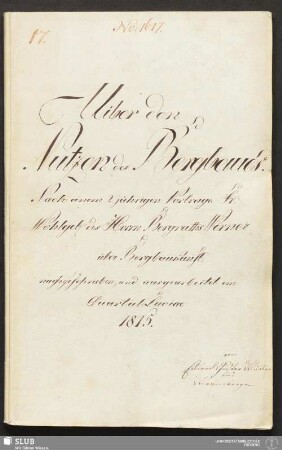 17.
No: 1617.
Uiber den
Nutzen des Bergbaues.
Nach einem 2 jährigen Vortrage Sr.
Wohlgeb. des Herrn Bergraths Werner
über Bergbaukunst
nachgeschrieben, und ausgearbeitet im
Quartal Luciae
1815.
von
SLUB
Wir führen Wissen.
UNIVERSITÄTSBIBLIOTHEK
FREIBERG